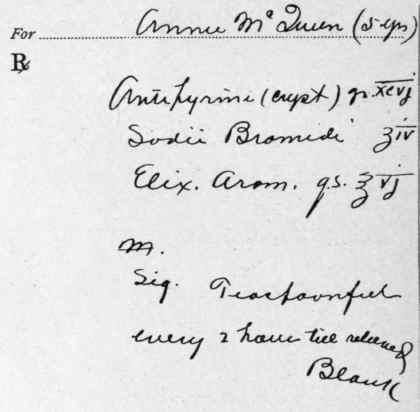 For Annie McQueen (5 yrs)
℞
Antipyrine (cryst) gr. xcvj
Sodii Bromidi ʒ iv
Elix. Arom. q.s. ℥ vj
M.
Sig. Teaspoonful
every 2 hours till relieved
Blank